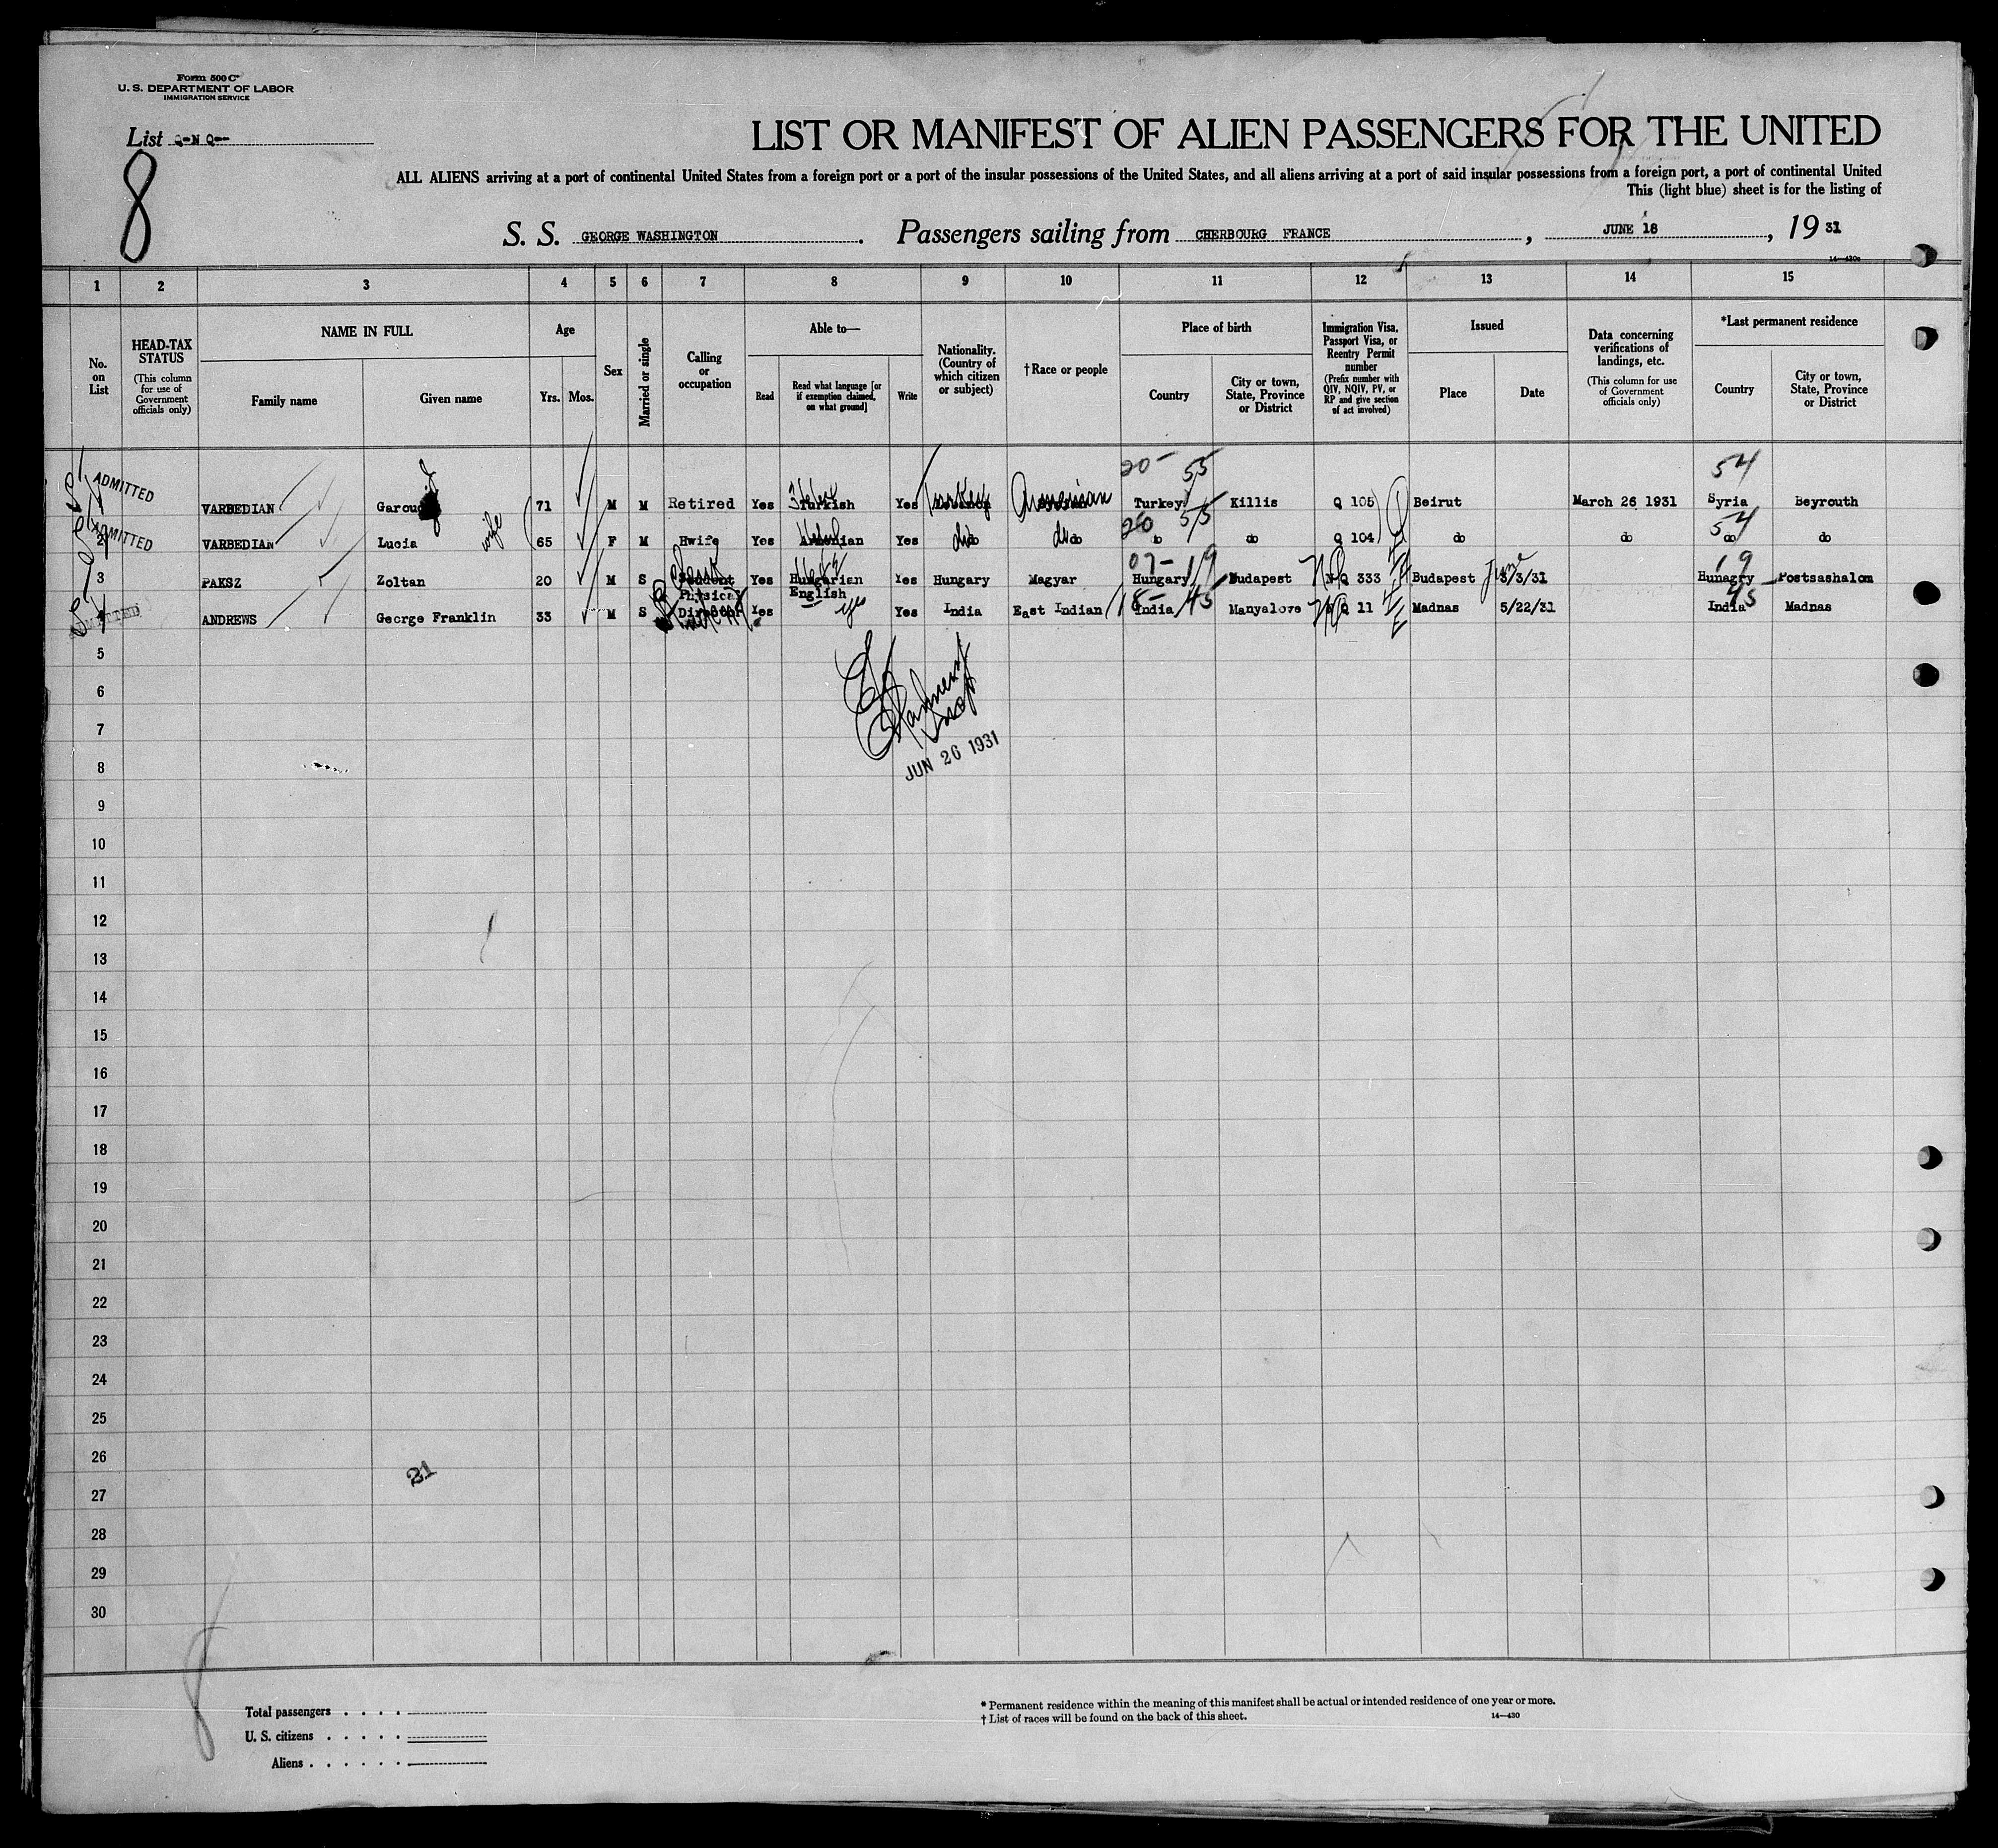 Form 500 C
U. S. DEPARTMENT OF LABOR
IMMIGRATION SERVICE
List Q-N Q--
8
LIST OR MANIFEST OF ALIEN PASSENGERS FOR THE UNITED
ALL ALIENS arriving at a port of continental United States from a foreign port or a port of the insular possessions of the United States, and all aliens arriving at a port of said insular possessions from a foreign port, a port of continental United
This (light blue) sheet is for the listing of
S. S. GEORGE WASHINGTON. Passengers sailing from CHERBOURG FRANCE, JUNE 18, 19 31
1 2 3 4 5 6 7 8 9 10 11 12 13 14 15
No. on List
HEAD-TAX STATUS (This column for use of Government officials only)
NAME IN FULL Family name Given name
Age Yrs. Mos.
Sex
Married or single
Calling or occupation
Able to— Read Read what language [or if exemption claimed, on what ground] Write
Nationality. (Country of which citizen or subject)
†Race or people
Place of birth Country City or town, State, Province or District
Immigration Visa, Passport Visa, or Reentry Permit number (Prefix number with QIV, NQIV, PV, or RP and give section of act involved)
Issued Place Date
Data concerning verifications of landings, etc. (This column for use of Government officials only)
*Last permanent residence Country City or town, State, Province or District
20- 55 54
ADMITTED VARBEDIAN 71 M M Retired Yes Turkish Yes Turkey Armenian Turkey Killis Q 105 Beirut March 26 1931 Syria Beyrouth
20 55 54
2 ADMITTED VARBEDIAN Lucia wife 65 F M Hwife Yes Armenian Yes do do do do Q 104 do do do do
07- 19 19
3 PAKSZ Zoltan 20 M S Student Yes Hungarian Yes Hungary Magyar Hungary Budapest NQ 333 Budapest 3/3/31 Hunagry Postsashalom
Physical English 18- 45 45
4 ADMITTED ANDREWS George Franklin 33 M S Director Yes yes Yes India East Indian India Manyalove Q 11 Madnas 5/22/31 India Madnas
5
6
7
JUN 26 1931
8
9
10
11
12
13
14
15
16
17
18
19
20
21
22
23
24
25
26
21
27
28
29
30
8
Total passengers
U. S. citizens
Aliens
* Permanent residence within the meaning of this manifest shall be actual or intended residence of one year or more.
† List of races will be found on the back of this sheet.
14—430